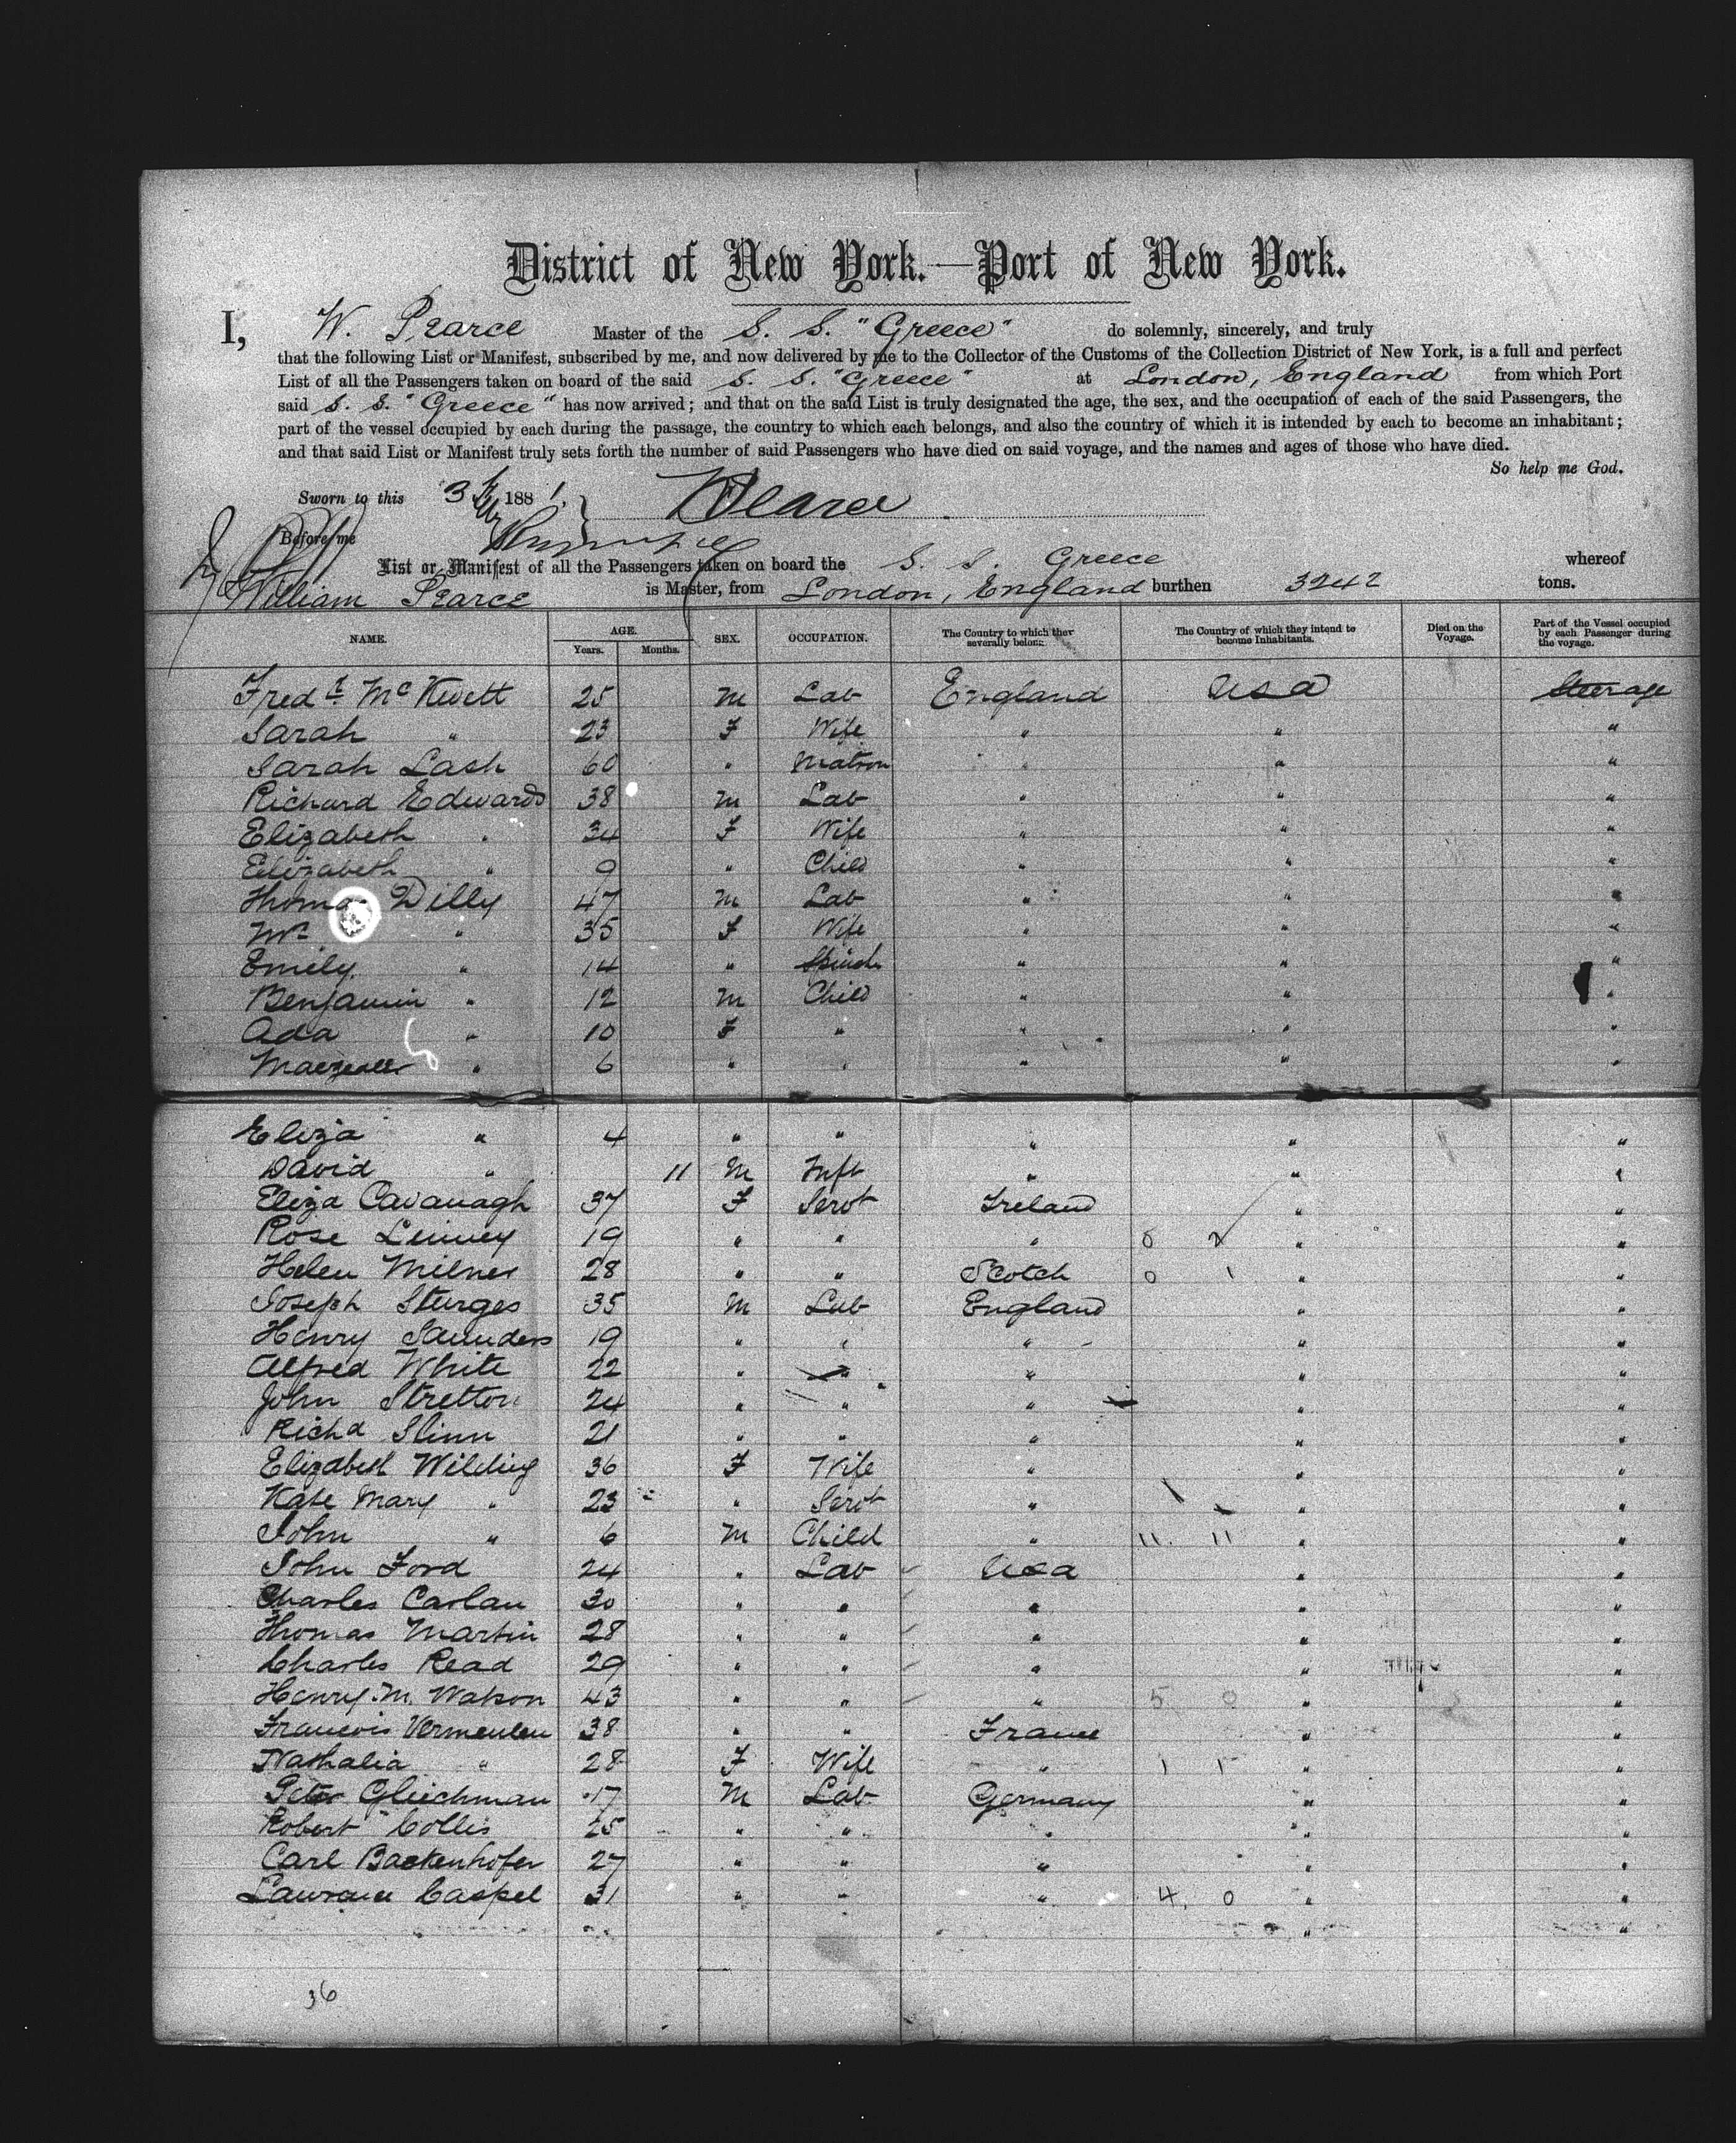 District of New York.—Port of New York.
I, W. Pearce Master of the S. S. "Greece" do solemnly, sincerely, and truly
that the following List or Manifest, subscribed by me, and now delivered by me to the Collector of the Customs of the Collection District of New York, is a full and perfect
List of all the Passengers taken on board of the said S. S. "Greece" at London, England from which Port
said S. S. "Greece" has now arrived; and that on the said List is truly designated the age, the sex, and the occupation of each of the said Passengers, the
part of the vessel occupied by each during the passage, the country to which each belongs, and also the country of which it is intended by each to become an inhabitant;
and that said List or Manifest truly sets forth the number of said Passengers who have died on said voyage, and the names and ages of those who have died.
So help me God.
Sworn to this 3 1881. WPearce
Before me
List or Manifest of all the Passengers taken on board the S. S. Greece whereof
William Pearce is Master, from London, England burthen 3242 tons.
NAME. AGE. Years. Months. SEX. OCCUPATION. The Country to which they severally belong. The Country of which they intend to become Inhabitants. Died on the Voyage. Part of the Vessel occupied by each Passenger during the voyage.
Fredk McKevett 25 M Lab England USA Steerage
Sarah " 23 F Wife " " "
Sarah Lash 60 " Matron " " "
Richard Edwards 38 M Lab " " "
Elizabeth " 34 F Wife " " "
Elizabeth " 9 " Child " " "
Thomas Dilly 47 M Lab " " "
Mrs " 35 F Wife " " "
Emily " 14 " Spinstr " " "
Benjamin " 12 M Child " " "
Ada " 10 F " " " "
" 6 " " " " "
Eliza " 4 " " " " "
David " 11 M Inft " " "
Eliza Cavanagh 37 F Servt Ireland " "
Rose Linney 19 " " " 0 2 " "
Helen Milner 28 " " Scotch 0 1 " "
Joseph Sturges 35 M Lab England " "
Henry Saunders 19 " " " " "
Alfred White 22 " " " " "
John Stretton 24 " " " " "
Richd Slinn 21 " " " " "
Elizabeth Wilding 36 F Wife " " "
Kate Mary " 23 " Servt " " "
John " 6 M Child " 11. 11 " "
John Ford 24 " Lab USA " "
Charles Carlau 30 " " " " "
Thomas Martin 28 " " " " "
Charles Read 29 " " " " "
Henry M. Watson 43 " " " 5 0 " "
Francois Vermeulen 38 " " France " "
Nathalia " 28 F Wife " 1 1 " "
Peter Gleichman 17 M Lab Germany " "
Robert Collis 25 " " " " "
Carl Backenhofer 27 " " " " "
Laurance Caspel 31 " " " 4. 0 " "
" "
36